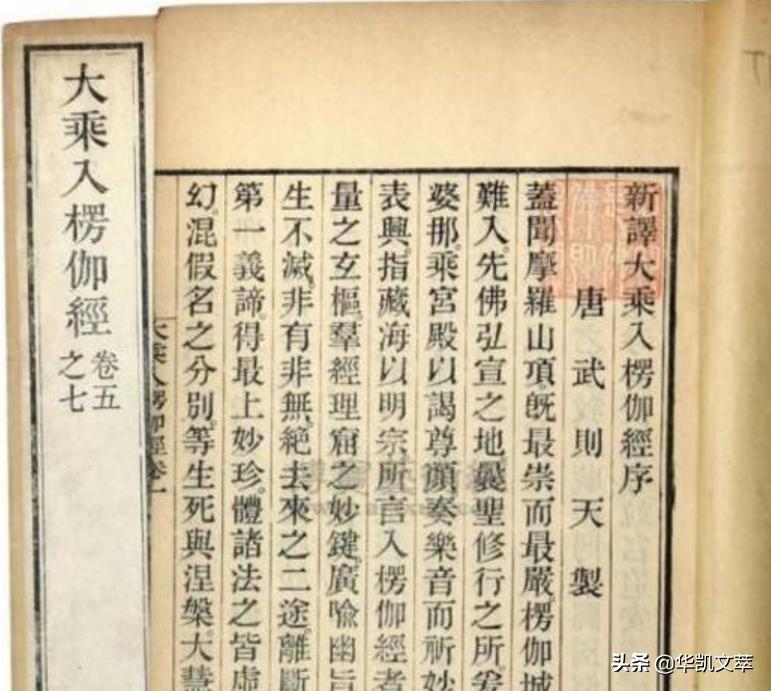 新譯大乘入楞伽經序
唐武則天製
蓋聞摩羅山頂。旣最崇而最嚴。楞伽城
難入。先佛弘宣之地。曩聖修行之所。爰
婆那。乘宮殿以謁尊顏。奏樂音而祈妙
表興。指藏海以明宗。所言入楞伽經者
量之玄樞。羣經理窟之妙鍵。廣喻幽旨
生不滅。非有非無。絶去來之二途。離斷
第一義諦。得最上妙珍。體諸法之皆虛
幻。混假名之分別。等生死與涅槃。大慧
大乘入楞伽經卷一
大乘入楞伽經 卷五之七
头条 @华凯文萃